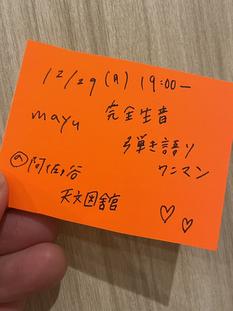 12/29(月) 19:00ー
mayu 完全生音
弾き語り
ワンマン
@阿佐ヶ谷
天文図舘